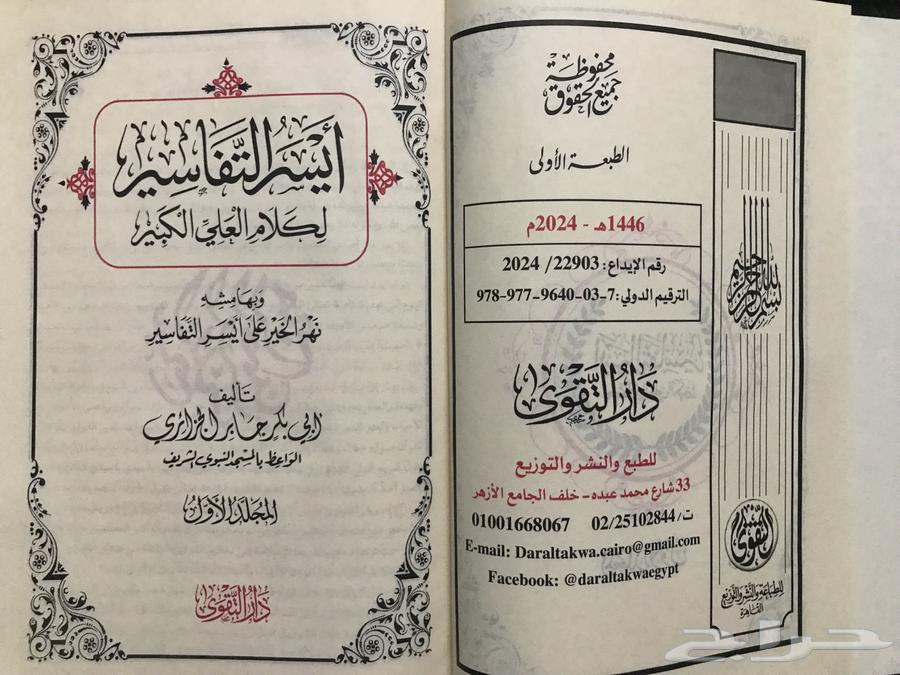 محفوظة
جميع الحقوق
الطبعة الأولى
1446هـ - 2024م
رقم الإيداع: 22903/ 2024
الترقيم الدولي: 7-03-9640-977-978
دار التقوى
للطبع والنشر والتوزيع
33 شارع محمد عبده - خلف الجامع الأزهر
ت/ 02/25102844 01001668067
E-mail: Daraltakwa.cairo@gmail.com
Facebook: @daraltakwaegypt
بسم الله الرحمن الرحيم
التقوى
للطباعة والنشر والتوزيع
القاهرة
أَيْسَرُ التَّفَاسِير
لِكَلَامِ العَلِيِّ الكَبِير
وبهامشه
نهر الخير على أيسر التفاسير
تأليف
أبي بكر جابر الجزائري
الواعظ بالمسجد النبوي الشريف
المجلد الأول
دار التقوى
حراج